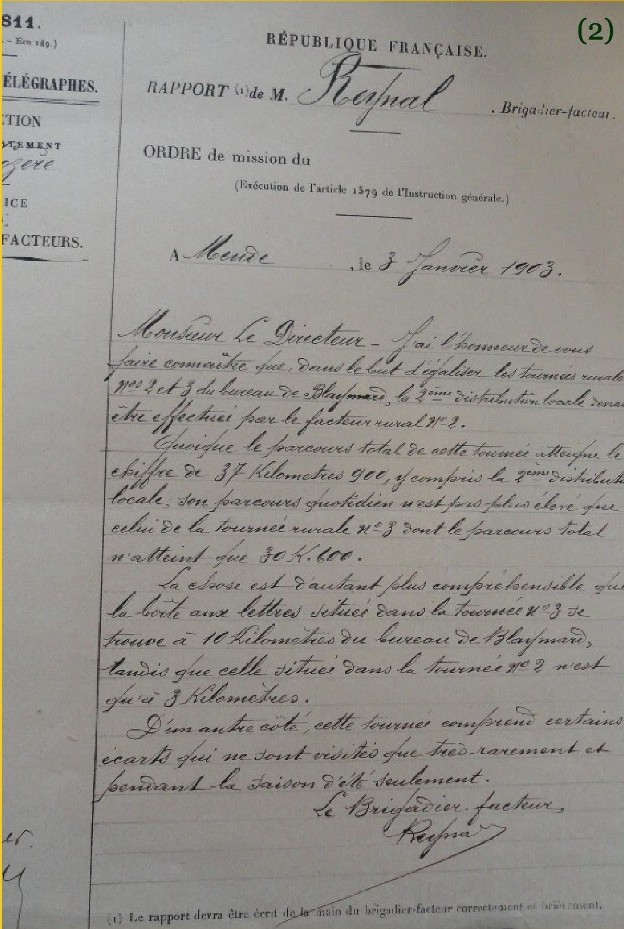 (2)
811.
- Ecn 149.)
ÉLÉGRAPHES.
CTION
RTEMENT
ozère
ICE
FACTEURS.
RÉPUBLIQUE FRANÇAISE.
RAPPORT (1) de M. Reynal, Brigadier-facteur.
ORDRE de mission du
(Exécution de l'article 1579 de l'Instruction générale.)
A Mende, le 3 Janvier 1903.
Monsieur Le Directeur – J'ai l'honneur de vous
faire connaître que, dans le but d'égaliser les tournées rurale
nos 2 et 3 du bureau de Blaymard, la 2ème distribution locale
être effectuée par le facteur rural No 2.
Quoique le parcours total de cette tournée atteigne le
chiffre de 37 Kilomètres 900, y compris la 2ème distribut
locale, son parcours quotidien n'est pas plus élevé que
celui de la tournée rurale no 3 dont le parcours total
n'atteint que 30 K. 600.
La chose est d'autant plus compréhensible que
la boîte aux lettres située dans la tournée No 3 se
trouve à 10 Kilomètres du bureau de Blaymard,
tandis que celle située dans la tournée No 2 n'est
qu'à 3 Kilomètres.
D'un autre côté, cette tournée comprend certains
écarts qui ne sont visités que très-rarement et
pendant la saison d'été seulement.
Le Brigadier-facteur,
Reynal
(1) Le rapport devra être écrit de la main du brigadier-facteur correctement et brièvement.